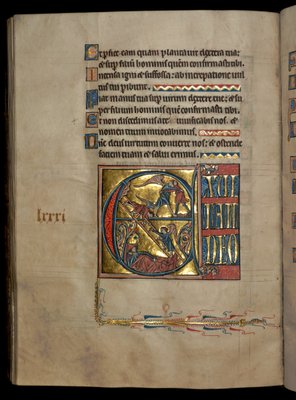 Et pfice eam quam plantauit dextera tua:
et sup filium hominis quem confirmasti tibi.
Incensa igni et suffossa: ab increpatione uul
tus tui peribunt.
Fiat manus tua sup uirum dextere tue: et su
per filium hominis quem confirmasti tibi.
Et non discedimus a te uiuificabis nos: et
nomen tuum inuocabimus.
Dne deus uirtutum conuerte nos: et ostende
faciem tuam et salui erimus.
E
lxxxi